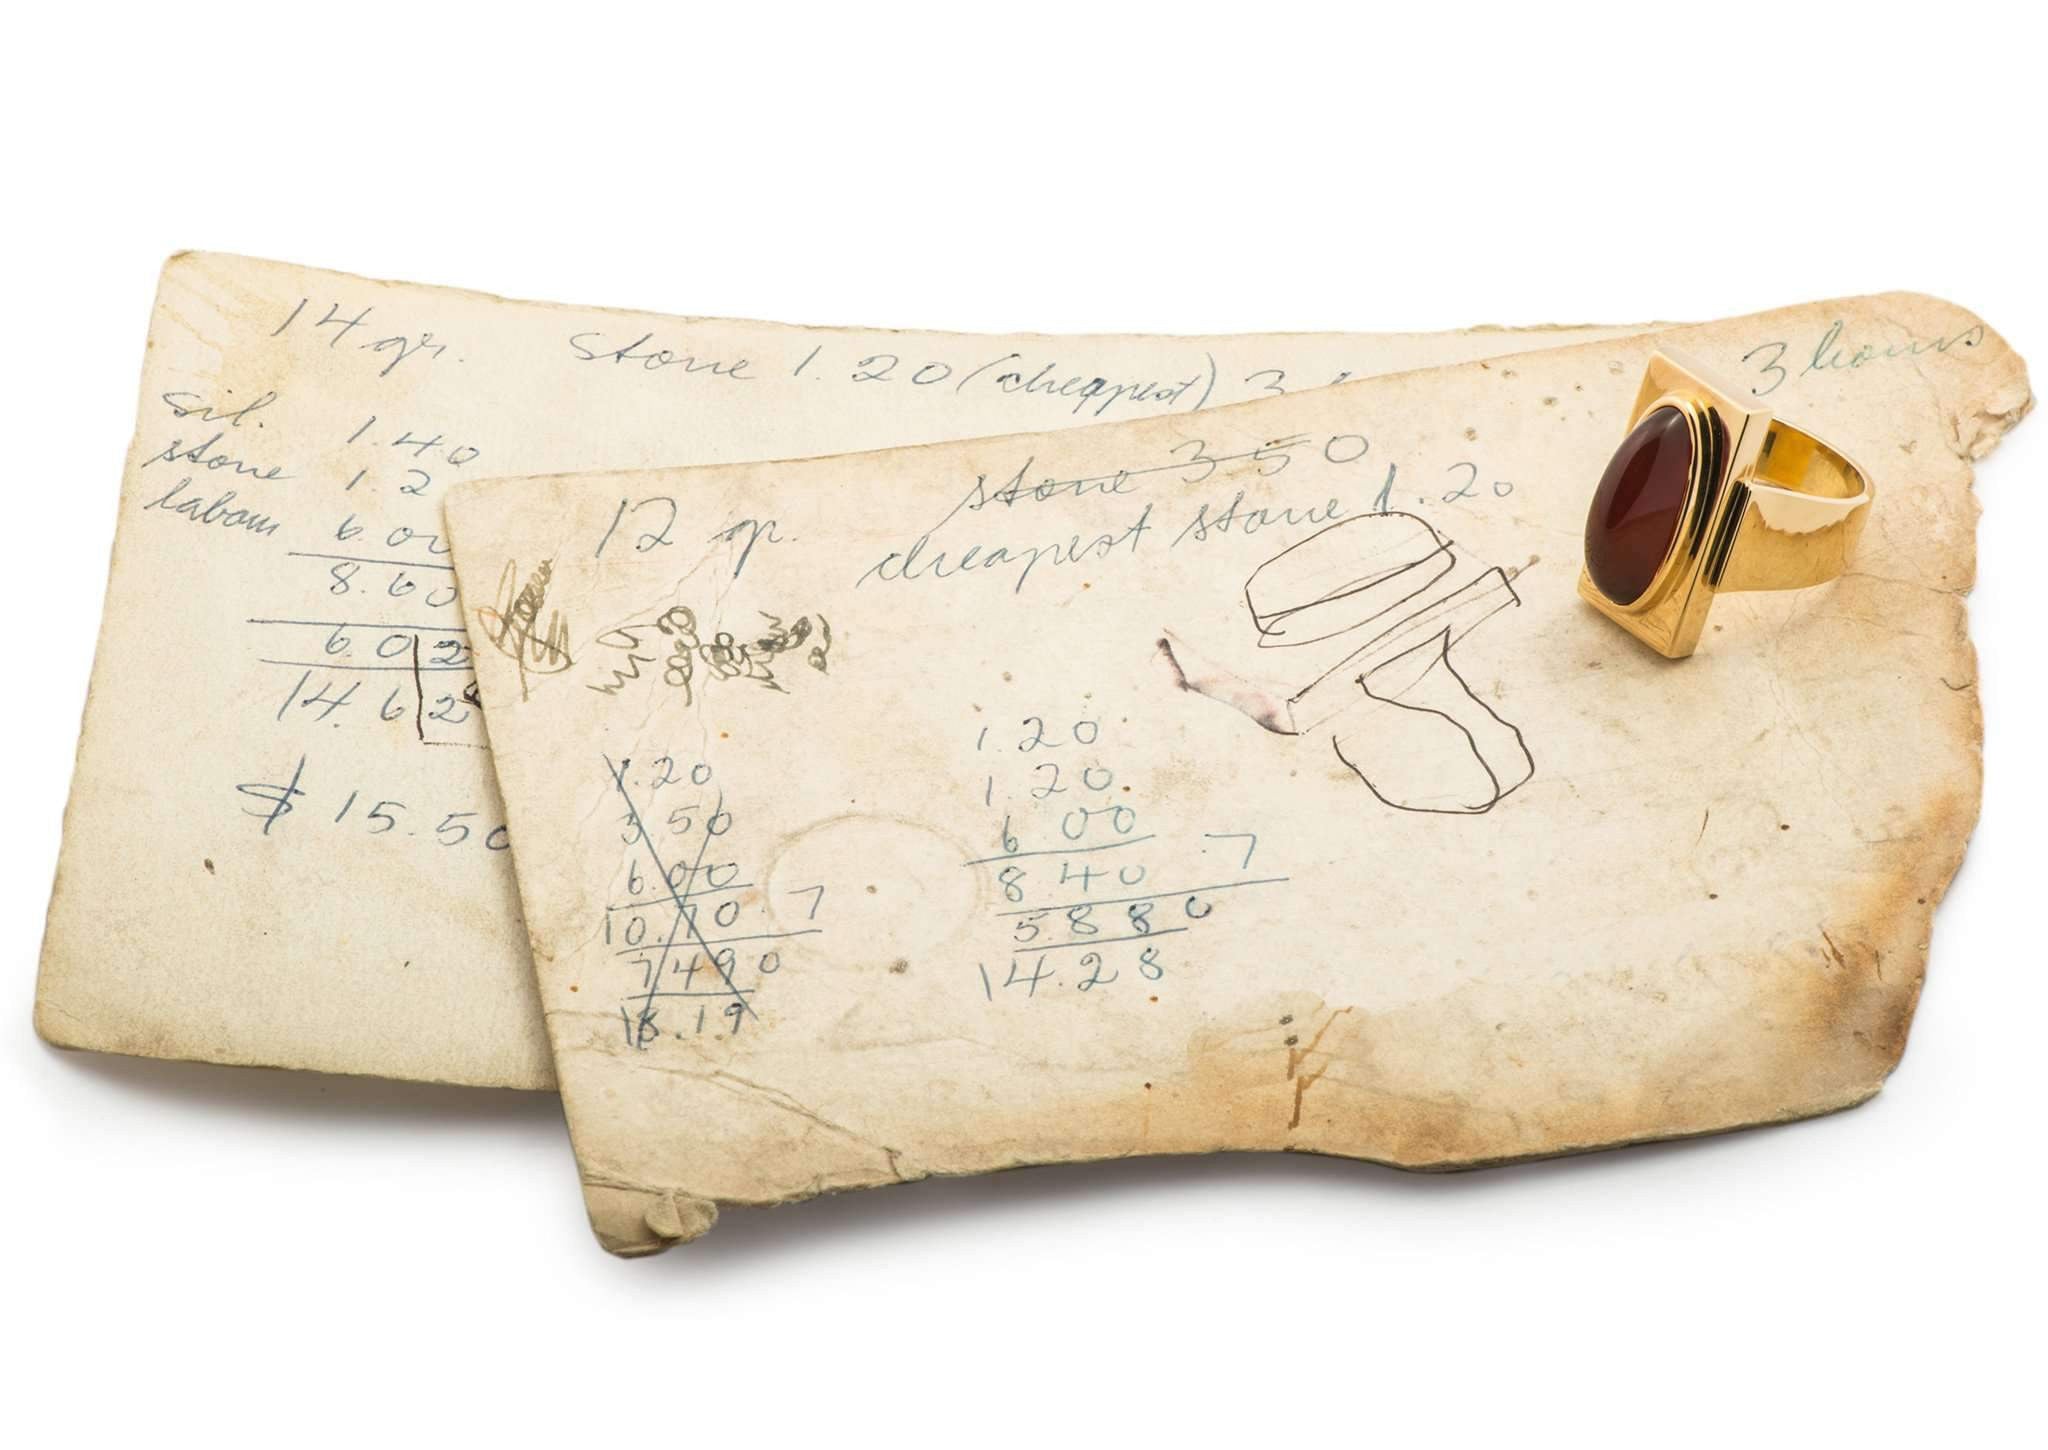 14 gr. stone 1.20 (cheapest) 3
sil. 1.40
stone 1.2
labour 6.00
8.60
6.02
14.62
$15.50
3 hours
stone 350
12 gr. cheapest stone 1.20
1.20
3 50
6.00
10.70 .7
7490
18.19
1.20
1.20
6 00
8 40 .7
5.880
14.28